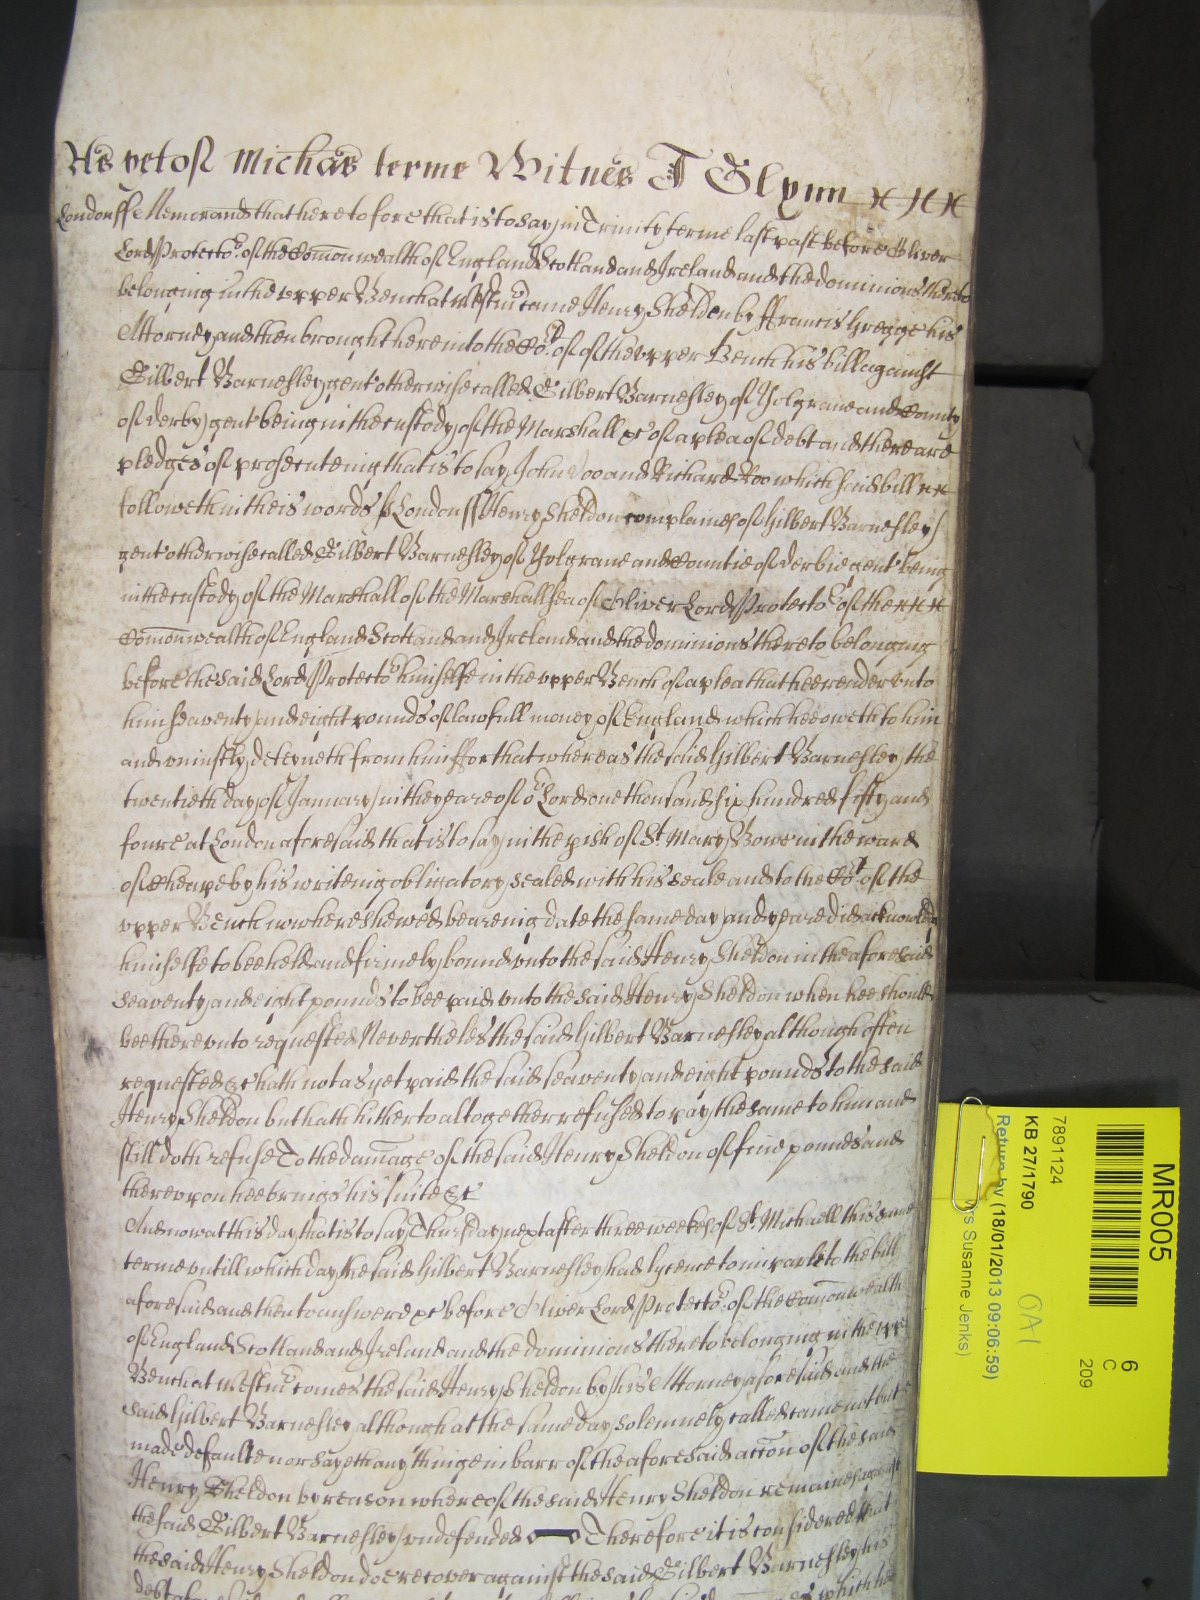 As yet of Michaās terme Witnes J Glynn
London ss Memorand that heretofore that is to say in Trinity terme last past before Oliver
Lord Protector of the Comonwealth of England Scotland and Ireland and the dominions thereto
belonging in the vpper Bench at Westmr came Henry Sheldon by Francis Gregge his
Attorney and then brought here into the Cort of of the vpper Bench his bill against
Gilbert Barnesley gent otherwise called Gilbert Barnesley of Yolgrane and County
of derby gent being in the custody of the Marshall &c of a plea of debt and there are
pledges of prosecuteing that is to say John Doo and Richard Roo which said bill
followeth in theis words ss London ss Henry Sheldon complaines of Gilbert Barnesley
gent otherwise called Gilbert Barnesley of Yolgrane and Countie of derbie gent being
in the custody of the Marshall of the Marshallsea of Oliver Lord Protector of the
Comonwealth of England Scotland and Ireland and the dominions thereto belonging
before the said Lord Protector himselfe in the vpper Bench of a plea that hee render vnto
him seaventy and eight pounds of lawfull money of England which hee oweth to him
and vniustly deteyneth from him ffor that whereas the said Gilbert Barnesley the
twentieth day of January in the yeare of or Lord one thousand six hundred fifty and
foure at London aforesaid that is to say in the pish of St Mary Bowe in the ward
of Cheape by his writeing obligatory sealed with his seale and to the Cort of the
vpper Bench now here shewed beareing date the same day and yeare did acknowledg
himselfe to bee held and firmely bound vnto the said Henry Sheldon in the aforesaid
seaventy and eight pounds to bee paid vnto the said Henry Sheldon when hee should
bee therevnto requested Neverthelės the said Gilbert Barnesley although often
requested &c hath not as yet paid the said seaventy and eight pounds to the said
Henry Sheldon but hath hitherto altogether refused to pay the same to him and
still doth refuse To the damage of the said Henry Sheldon of five pounds and
therevpon hee brings his suite &c
And now at this day that is to say Thursday next after three weekes of St Michaell this same
terme vntill which day the said Gilbert Barnesley had lycence to imparle to the bill
aforesaid and then to answere &c before Oliver Lord Protector of the Comonwealth
of England Scotland and Ireland and the dominions thereto belonging in the vpp
Bench at Westmr comes the said Henry Sheldon by his Attorney aforesaid and the
said Gilbert Barnesley although at the same day solemnely called came not but
made defaulte nor sayeth any thinge in barr of the aforesaid accon of the said
Henry Sheldon by reason whereof the said Henry Sheldon remaines against
the said Gilbert Barnesley vndefended Therefore it is considered that
the said Henry Sheldon doe recover against the said Gilbert Barnesley his
debt
MR005
6
C
209
7891124
KB 27/1790
OA1
Return by (18/01/2013 09:06:59)
Mrs Susanne Jenks)